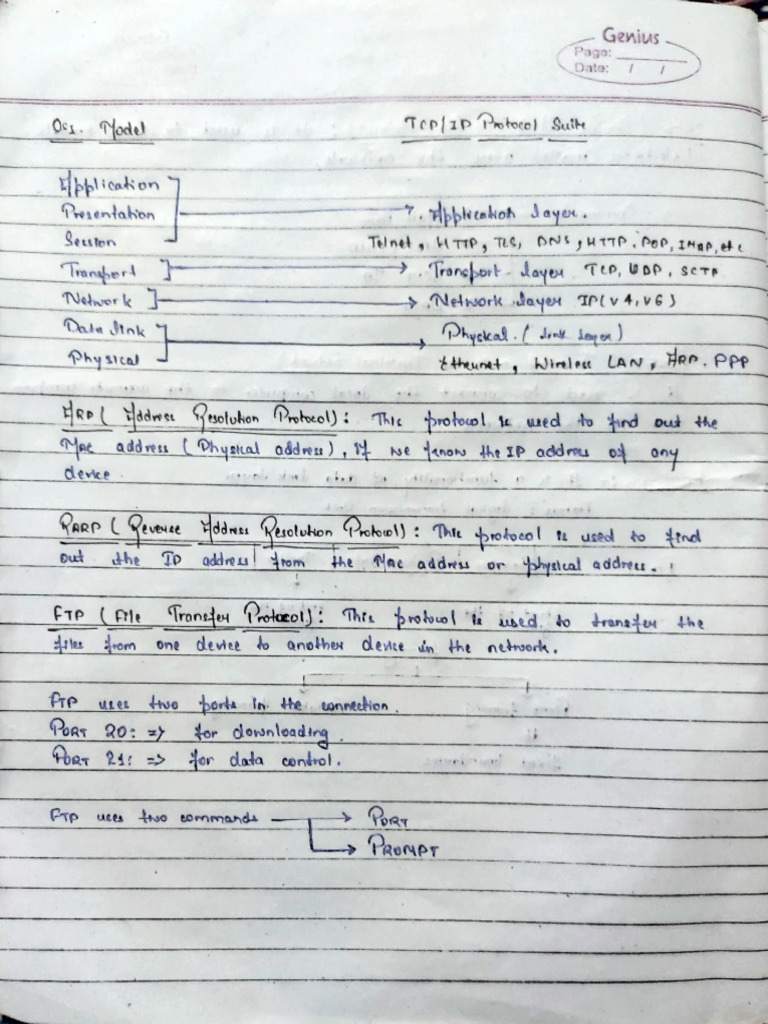 Genius
Page:
Date: / /
OSI. Model TCP/IP Protocol Suite
Application
Presentation Application layer.
Session Telnet, HTTP, TLS, DNS, HTTP. POP, IMAP, etc
Transport Transport layer TCP, UDP, SCTP
Network Network layer IP(V4, V6)
Data link Physical. (link layer)
Physical Ethernet, Wireless LAN, ARP. PPP
ARP( Address Resolution Protocol): This protocol is used to find out the
Mac address (Physical address), if we know the IP address of any
device.
RARP( Reverse Address Resolution Protocol): This protocol is used to find
out the IP address from the Mac address or physical address.
FTP (File Transfer Protocol): This protocol is used to transfer the
files from one device to another device in the network.
FTP uses two ports in the connection.
PORT 20: => for downloading.
PORT 21: => for data control.
FTP uses two commands → PORT
→ PROMPT